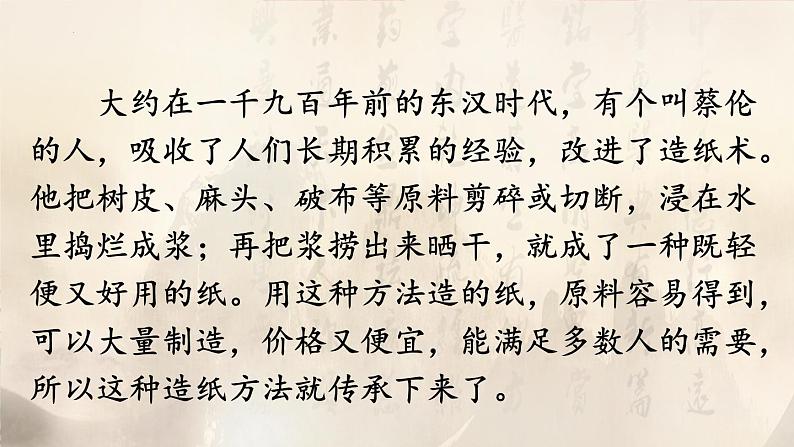 大约在一千九百年前的东汉时代，有个叫蔡伦
的人，吸收了人们长期积累的经验，改进了造纸术。
他把树皮、麻头、破布等原料剪碎或切断，浸在水
里捣烂成浆；再把浆捞出来晒干，就成了一种既轻
便又好用的纸。用这种方法造的纸，原料容易得到，
可以大量制造，价格又便宜，能满足多数人的需要，
所以这种造纸方法就传承下来了。